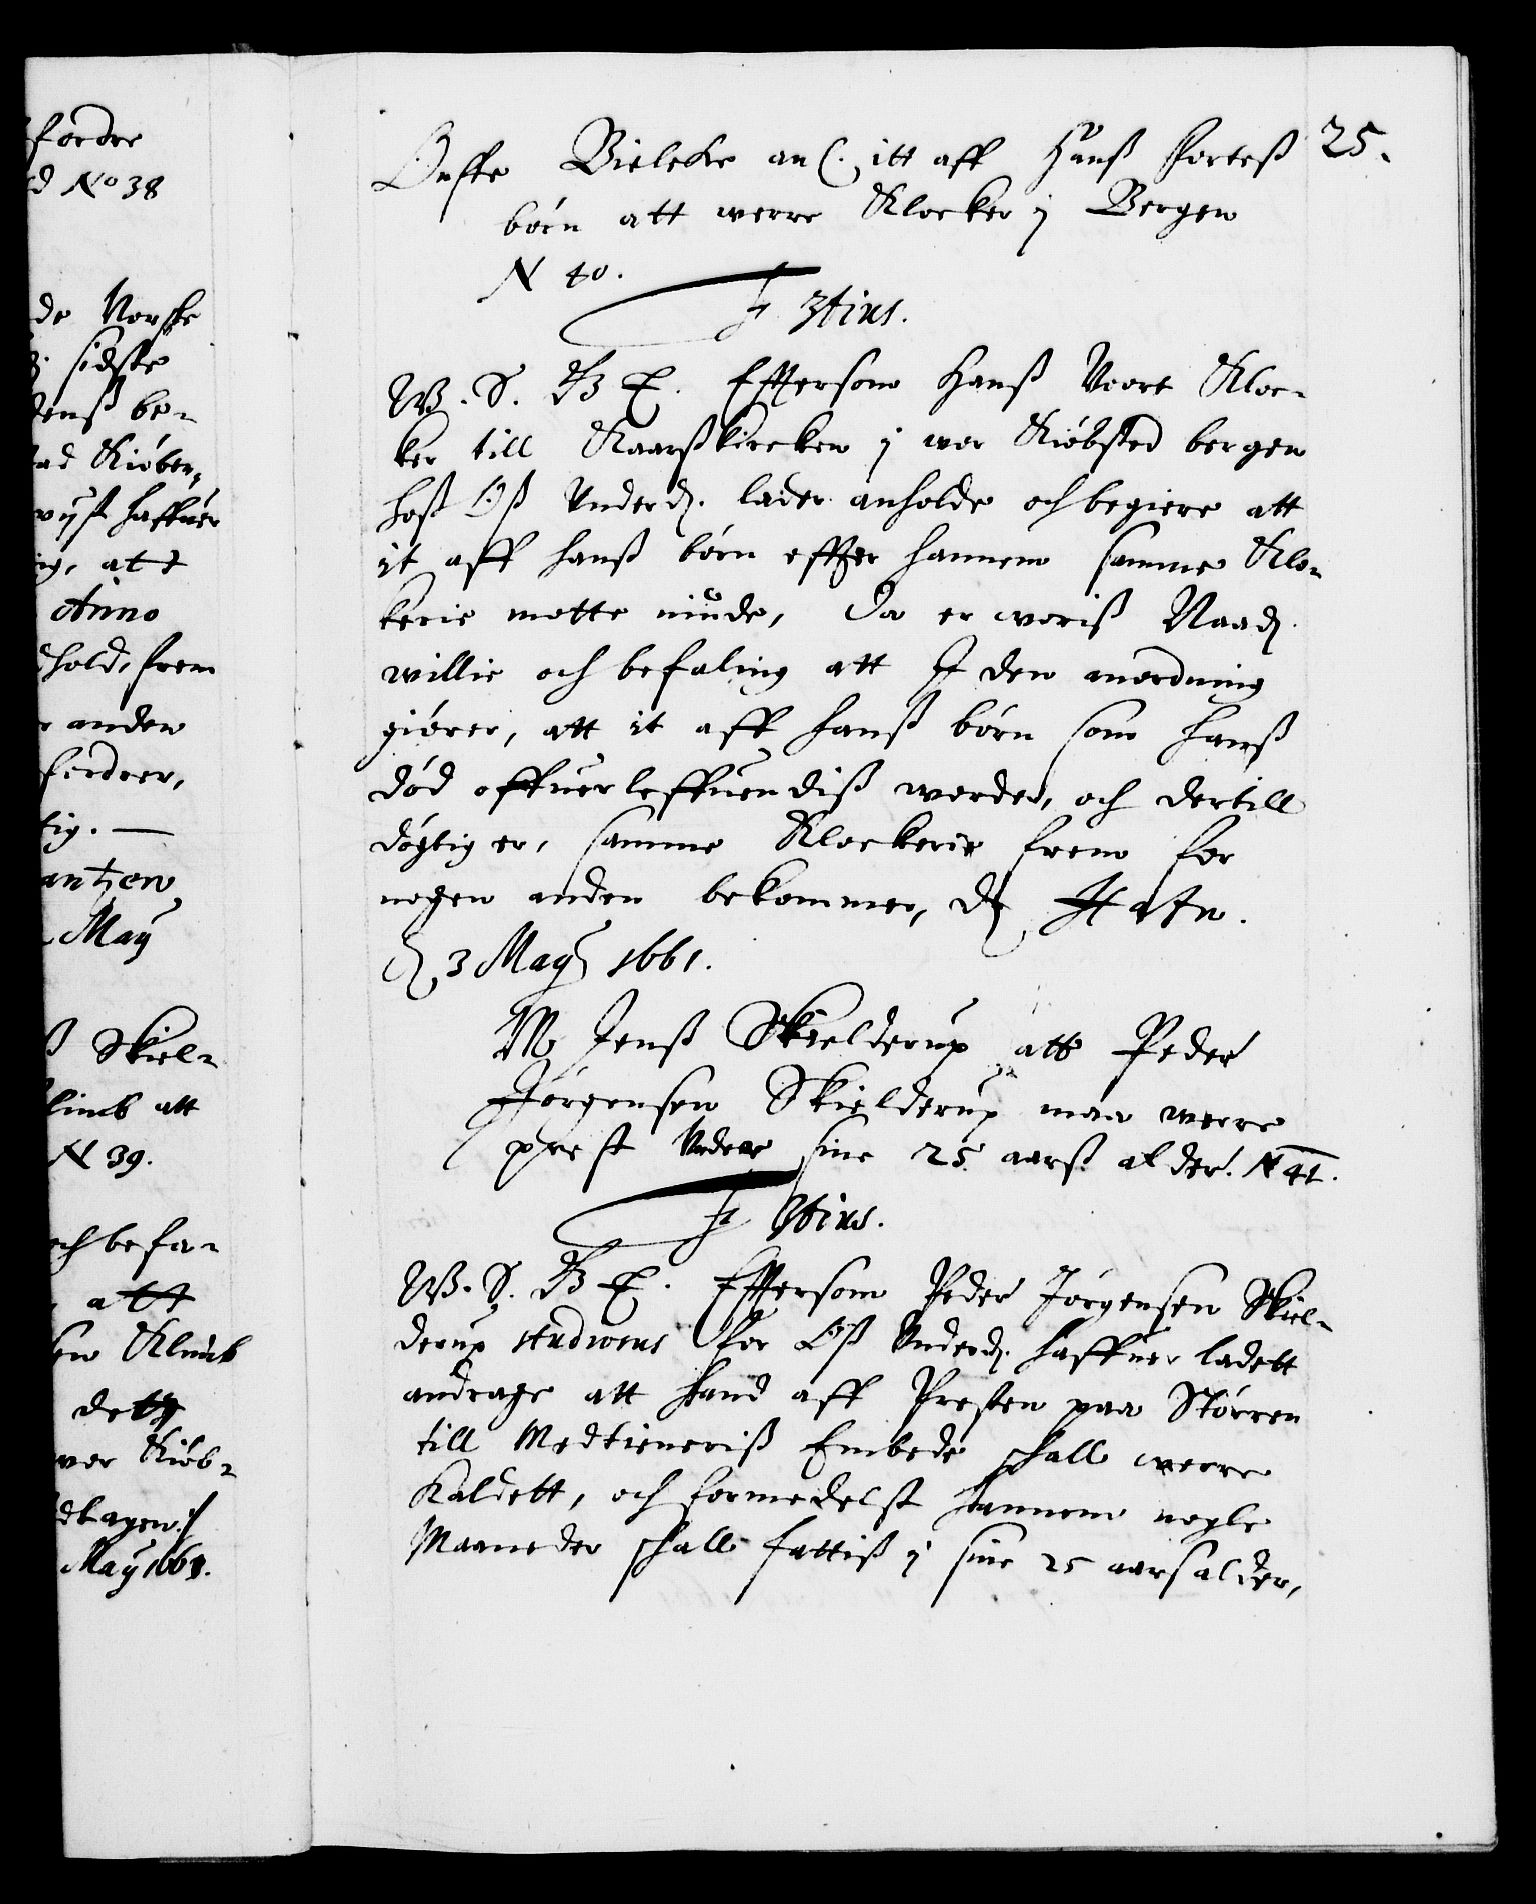 fordre
d No 38
de Norske
sidste
Jenß be-
ad Kiøben,
vijst haffuer
ig, att
Anno
hold, frem
r anden
ferdrer,
tig. —
antzow
May
ß Skiel-
limb att
N 39.
och befa-
att
en Klimb
dette
wor Kiøb-
dtagen
May 1661.
25.
Offe Bielcke an(. itt aff Hanß Forteß
børn att werre Klocker j Bergen
N 40.
F 3tius.
W. S. G. B E. Efftersom Hanß Voort Kloc-
ker till Kaarßkircken j wor Kiøbsted bergen
hoß Oß Underd. lader anholde och begiere att
it aff hanß børn effter hannem samme Klo-
kerie motte niude, Da er woriß Naad.
willie och befaling att I den anordning
giører, att it aff hanß børn som hanß
død offuerleffuendiß worder, och dertill
døgtig er, samme Klockerie frem for
nogen anden bekommer, D
D 3 May 1661.
M Jenß Skielderup att Peder
Jørgensen Skielderup maa werre
prest Under sine 25 aarß alder. N 41.
F 3tius.
W. S. G. B E. Efftersom Peder Jørgensen Skiel-
derup studiosus for Oß Underd. haffuer ladett
andrage att hand aff Presten paa Størren
till Medtieneriß Embede schall werre
Kaldett, och formedelst hannem nogle
Maaneder schall fattiß j sine 25 aars alder,